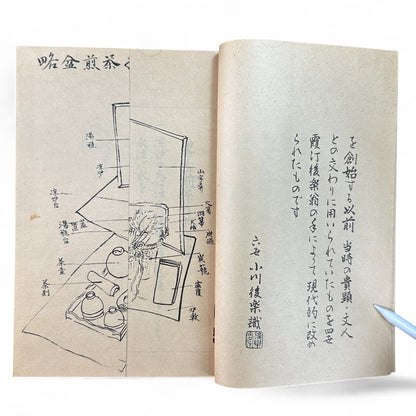 略盆煎茶
を創始する以前 当時の貴顕・文人
との交わりに用いられていたものを四世
霞汀後楽翁の手によって現代的に改め
られたものです
六世 小川後楽識
炉敷
湯瓶
涼炉
涼炉台
蓋置
湯瓶台
茶壺